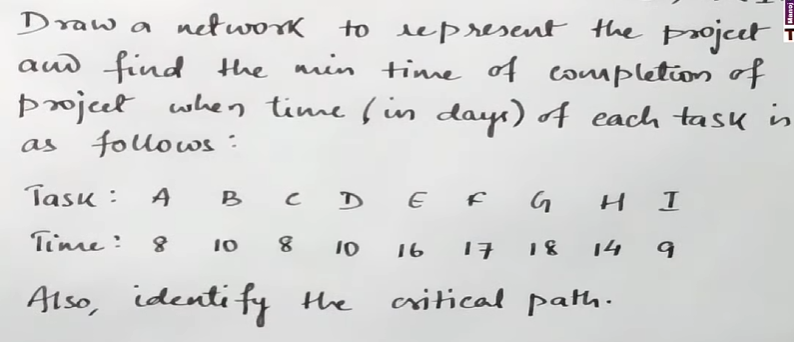 Draw a network to represent the project
and find the min time of completion of
project when time (in days) of each task is
as follows:
Task: A B C D E F G H I
Time: 8 10 8 10 16 17 18 14 9
Also, identify the critical path.
Manoj